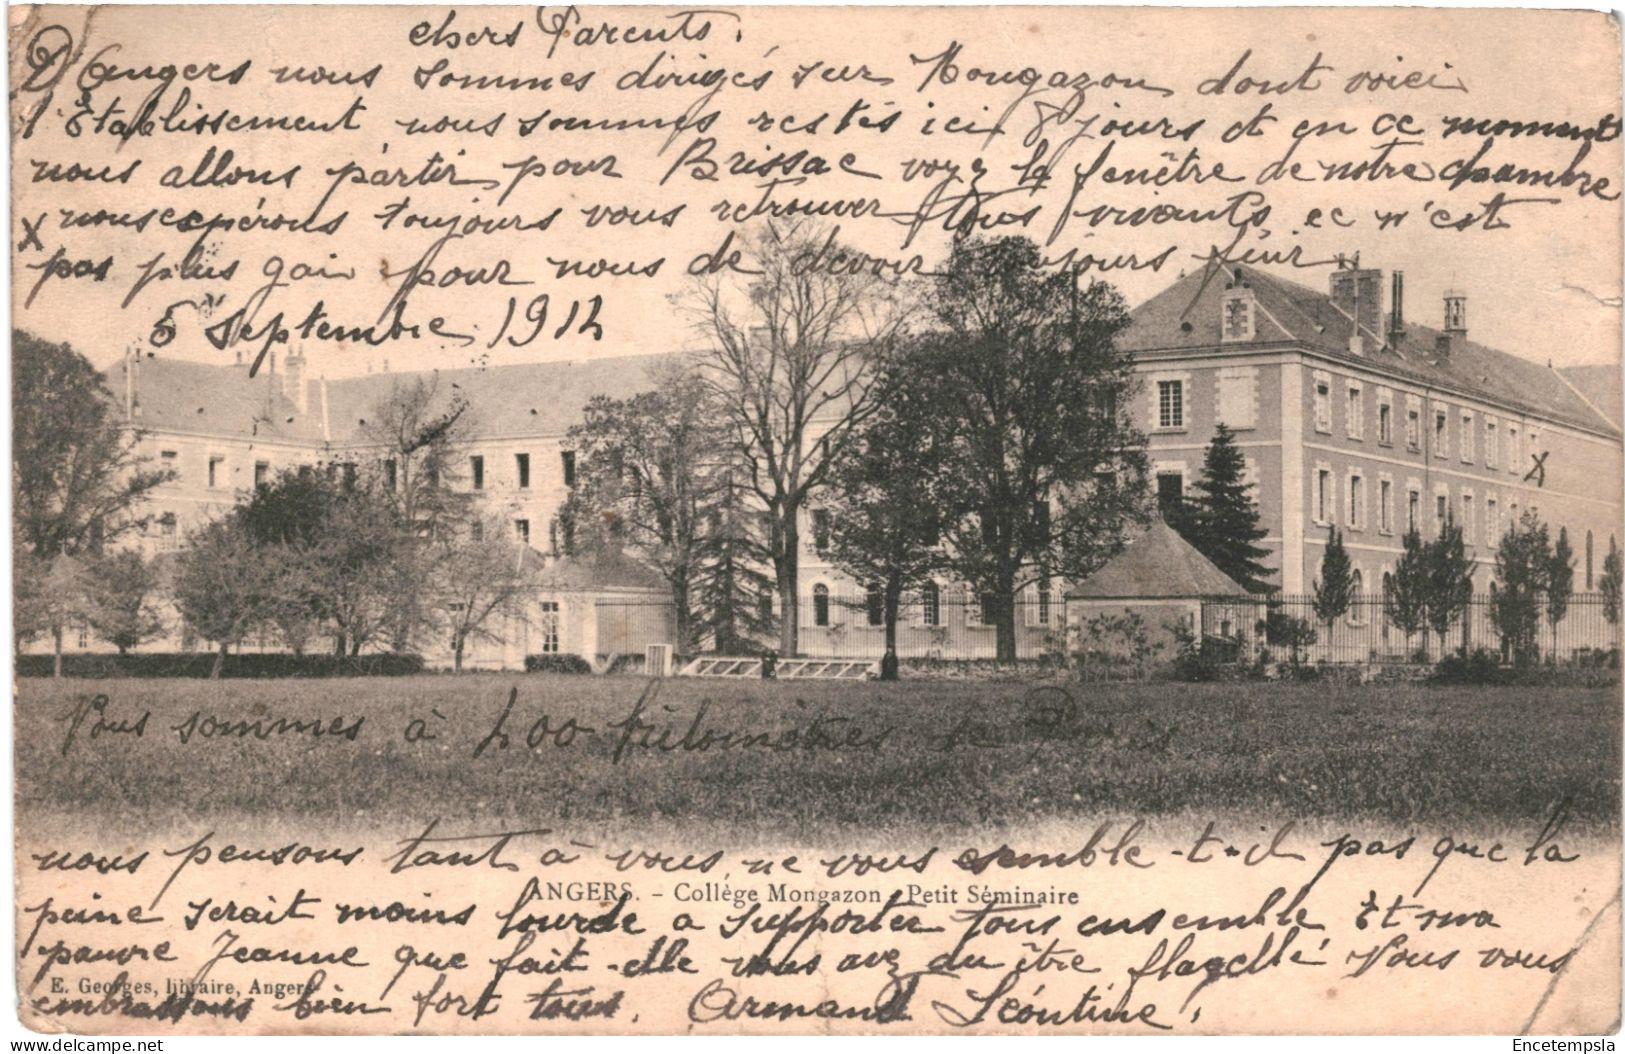 chers Parents.
D'Angers nous sommes dirigés sur Mongazon dont voici
l'Etablissement nous sommes restés ici 8 jours et en ce moment
nous allons partir pour Brissac voyez la fenêtre de notre chambre
X nous espérons toujours vous retrouver tous vivants, ce n'est
pas plus gai pour nous de devoir toujours fuir
5 Septembre 1914
X
Nous sommes à 400 kilomètres de Paris
nous pensons tant à vous ne vous semble-t-il pas que la
ANGERS. - Collège Mongazon - Petit Séminaire
peine serait moins lourde a supporter tous ensemble Et ma
pauvre Jeanne que fait-elle vous avez du être flagellé Nous vous
E. Georges, libraire, Angers
embrassons bien fort tous. Armand Léontine.
Encetempsla